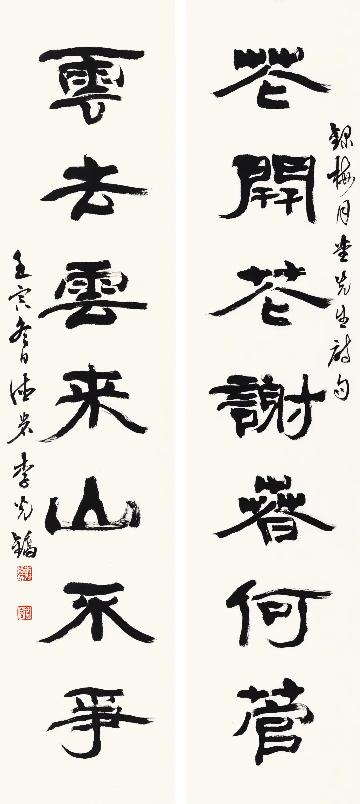 錄梅月堂先生詩句
花開花謝春何管
雲去雲来山不爭
壬寅冬日 李光鎬